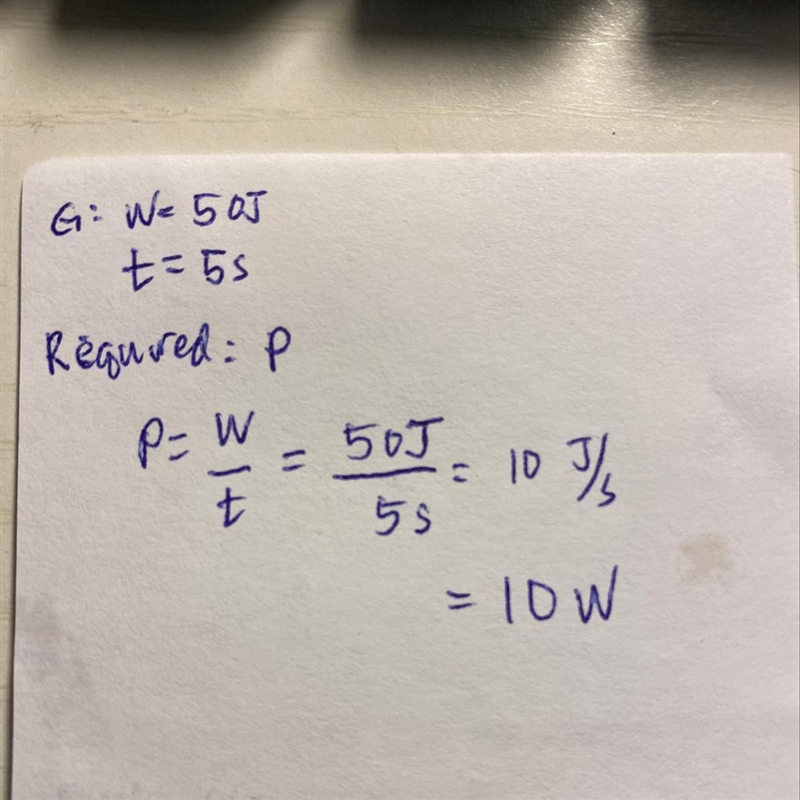 G: W= 50J
t= 5s
Requred: P
P= W/t = 50J/5s = 10 J/s
= 10 W